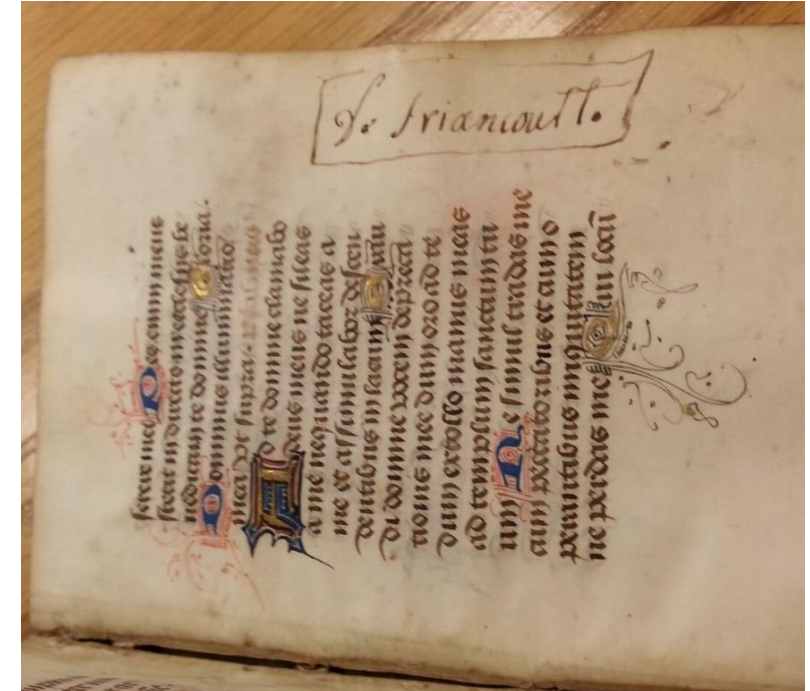 serere mei Pes enim meus
stetit in directo in ecclesiis be
nedicam te domine Gloria.
Dominus illuminatio
mea ut supra. Psalmus
Ad te domine clamabo
deus meus ne sileas
a me nequando taceas a
me et assimilabor descen
dentibus in lacum Exau
di domine vocem depreca
tionis mee dum oro ad te
dum extollo manus meas
ad templum sanctum tu
um Ne simul tradas me
cum peccatoribus et cum o
perantibus iniquitatem
ne perdas me Qui locū
friancourt.